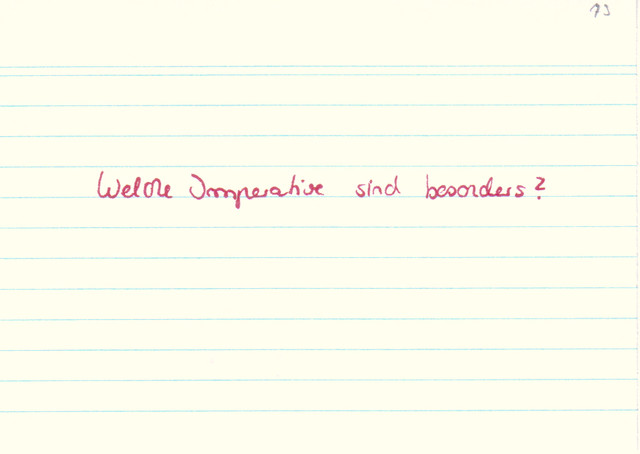 13
Welche Imperative sind besonders?